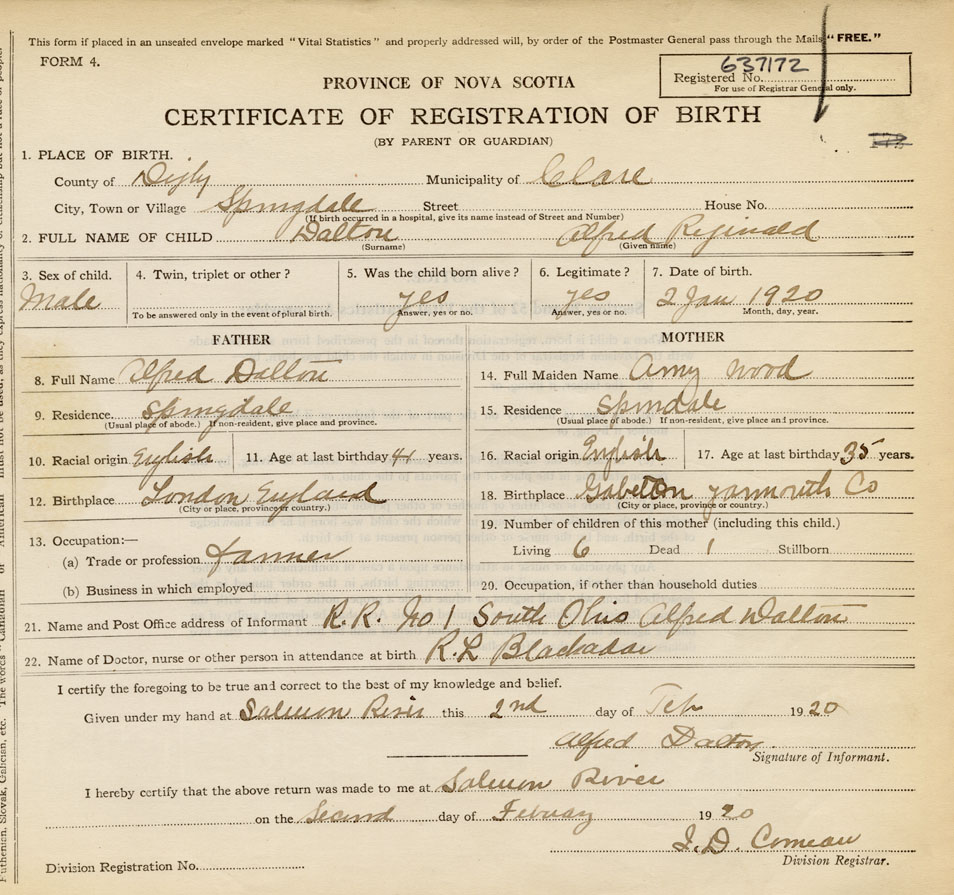 This form if placed in an unsealed envelope marked "Vital Statistics" and properly addressed will, by order of the Postmaster General pass through the Mails "FREE."
FORM 4.
637172
Registered No.
For use of Registrar General only.
PROVINCE OF NOVA SCOTIA
CERTIFICATE OF REGISTRATION OF BIRTH
(BY PARENT OR GUARDIAN)
1. PLACE OF BIRTH.
County of Digby Municipality of Clare
City, Town or Village Springdale Street House No.
(If birth occurred in a hospital, give its name instead of Street and Number)
2. FULL NAME OF CHILD Dalton Alfred Reginald
(Surname) (Given name)
3. Sex of child. 4. Twin, triplet or other? 5. Was the child born alive? 6. Legitimate? 7. Date of birth.
Male yes yes 2 Jan 1920
To be answered only in the event of plural birth. Answer, yes or no. Answer, yes or no. Month, day, year.
FATHER MOTHER
8. Full Name Alfred Dalton 14. Full Maiden Name Amy Wood
9. Residence. Springdale 15. Residence Spindale
(Usual place of abode.) If non-resident, give place and province. (Usual place of abode.) If non-resident, give place and province.
10. Racial origin English 11. Age at last birthday 41 years. 16. Racial origin English 17. Age at last birthday 35 years.
12. Birthplace London England 18. Birthplace Yarmouth Co
(City or place, province or country.) (City or place, province or country.)
19. Number of children of this mother (including this child.)
13. Occupation:—
(a) Trade or profession Farmer Living 6 Dead 1 Stillborn
(b) Business in which employed 20. Occupation, if other than household duties
21. Name and Post Office address of Informant R.R. No 1 South Ohio Alfred Dalton
22. Name of Doctor, nurse or other person in attendance at birth R.L Blackadar
I certify the foregoing to be true and correct to the best of my knowledge and belief.
Given under my hand at Salmon River this 2nd day of Feb 1920
Alfred Dalton
Signature of Informant.
I hereby certify that the above return was made to me at Salmon River
on the Second day of February 1920
J.D. Comeau
Division Registrar.
Division Registration No.